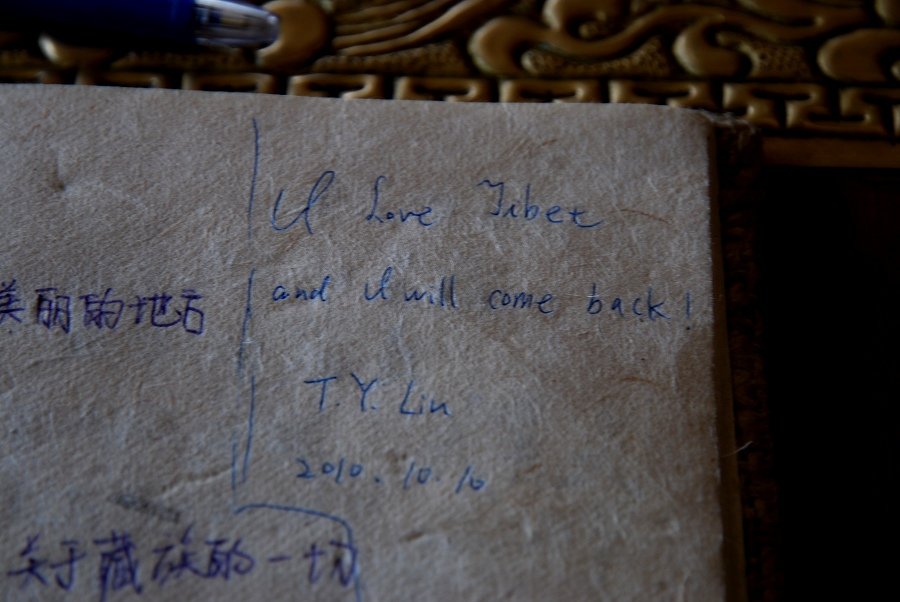 I Love Tibet
and I will come back!
T.Y. Lin
2010.10.16
美丽的地方
关于藏族的一切